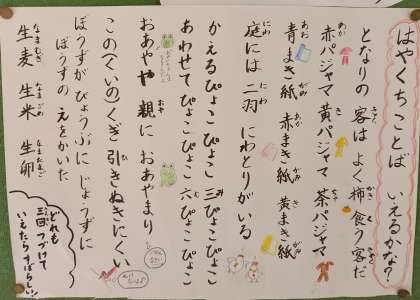 はやくちことば いえるかな?
となりの 客は よく 柿 食う 客だ
赤パジャマ 黄パジャマ 茶パジャマ
青まき紙 赤まき紙 黄まき紙
庭には 二羽 にわとりがいる
かえるぴょこぴょこ 三ぴょこぴょこ
あわせてぴょこぴょこ 六ぴょこぴょこ
おあやや 親に おあやまり
この(くいの)くぎ 引きぬきにくい
ぼうずが びょうぶに じょうずに
ぼうずの えをかいた
生麦 生米 生卵
どれも
三回つづけて
いえたらすばらしい!